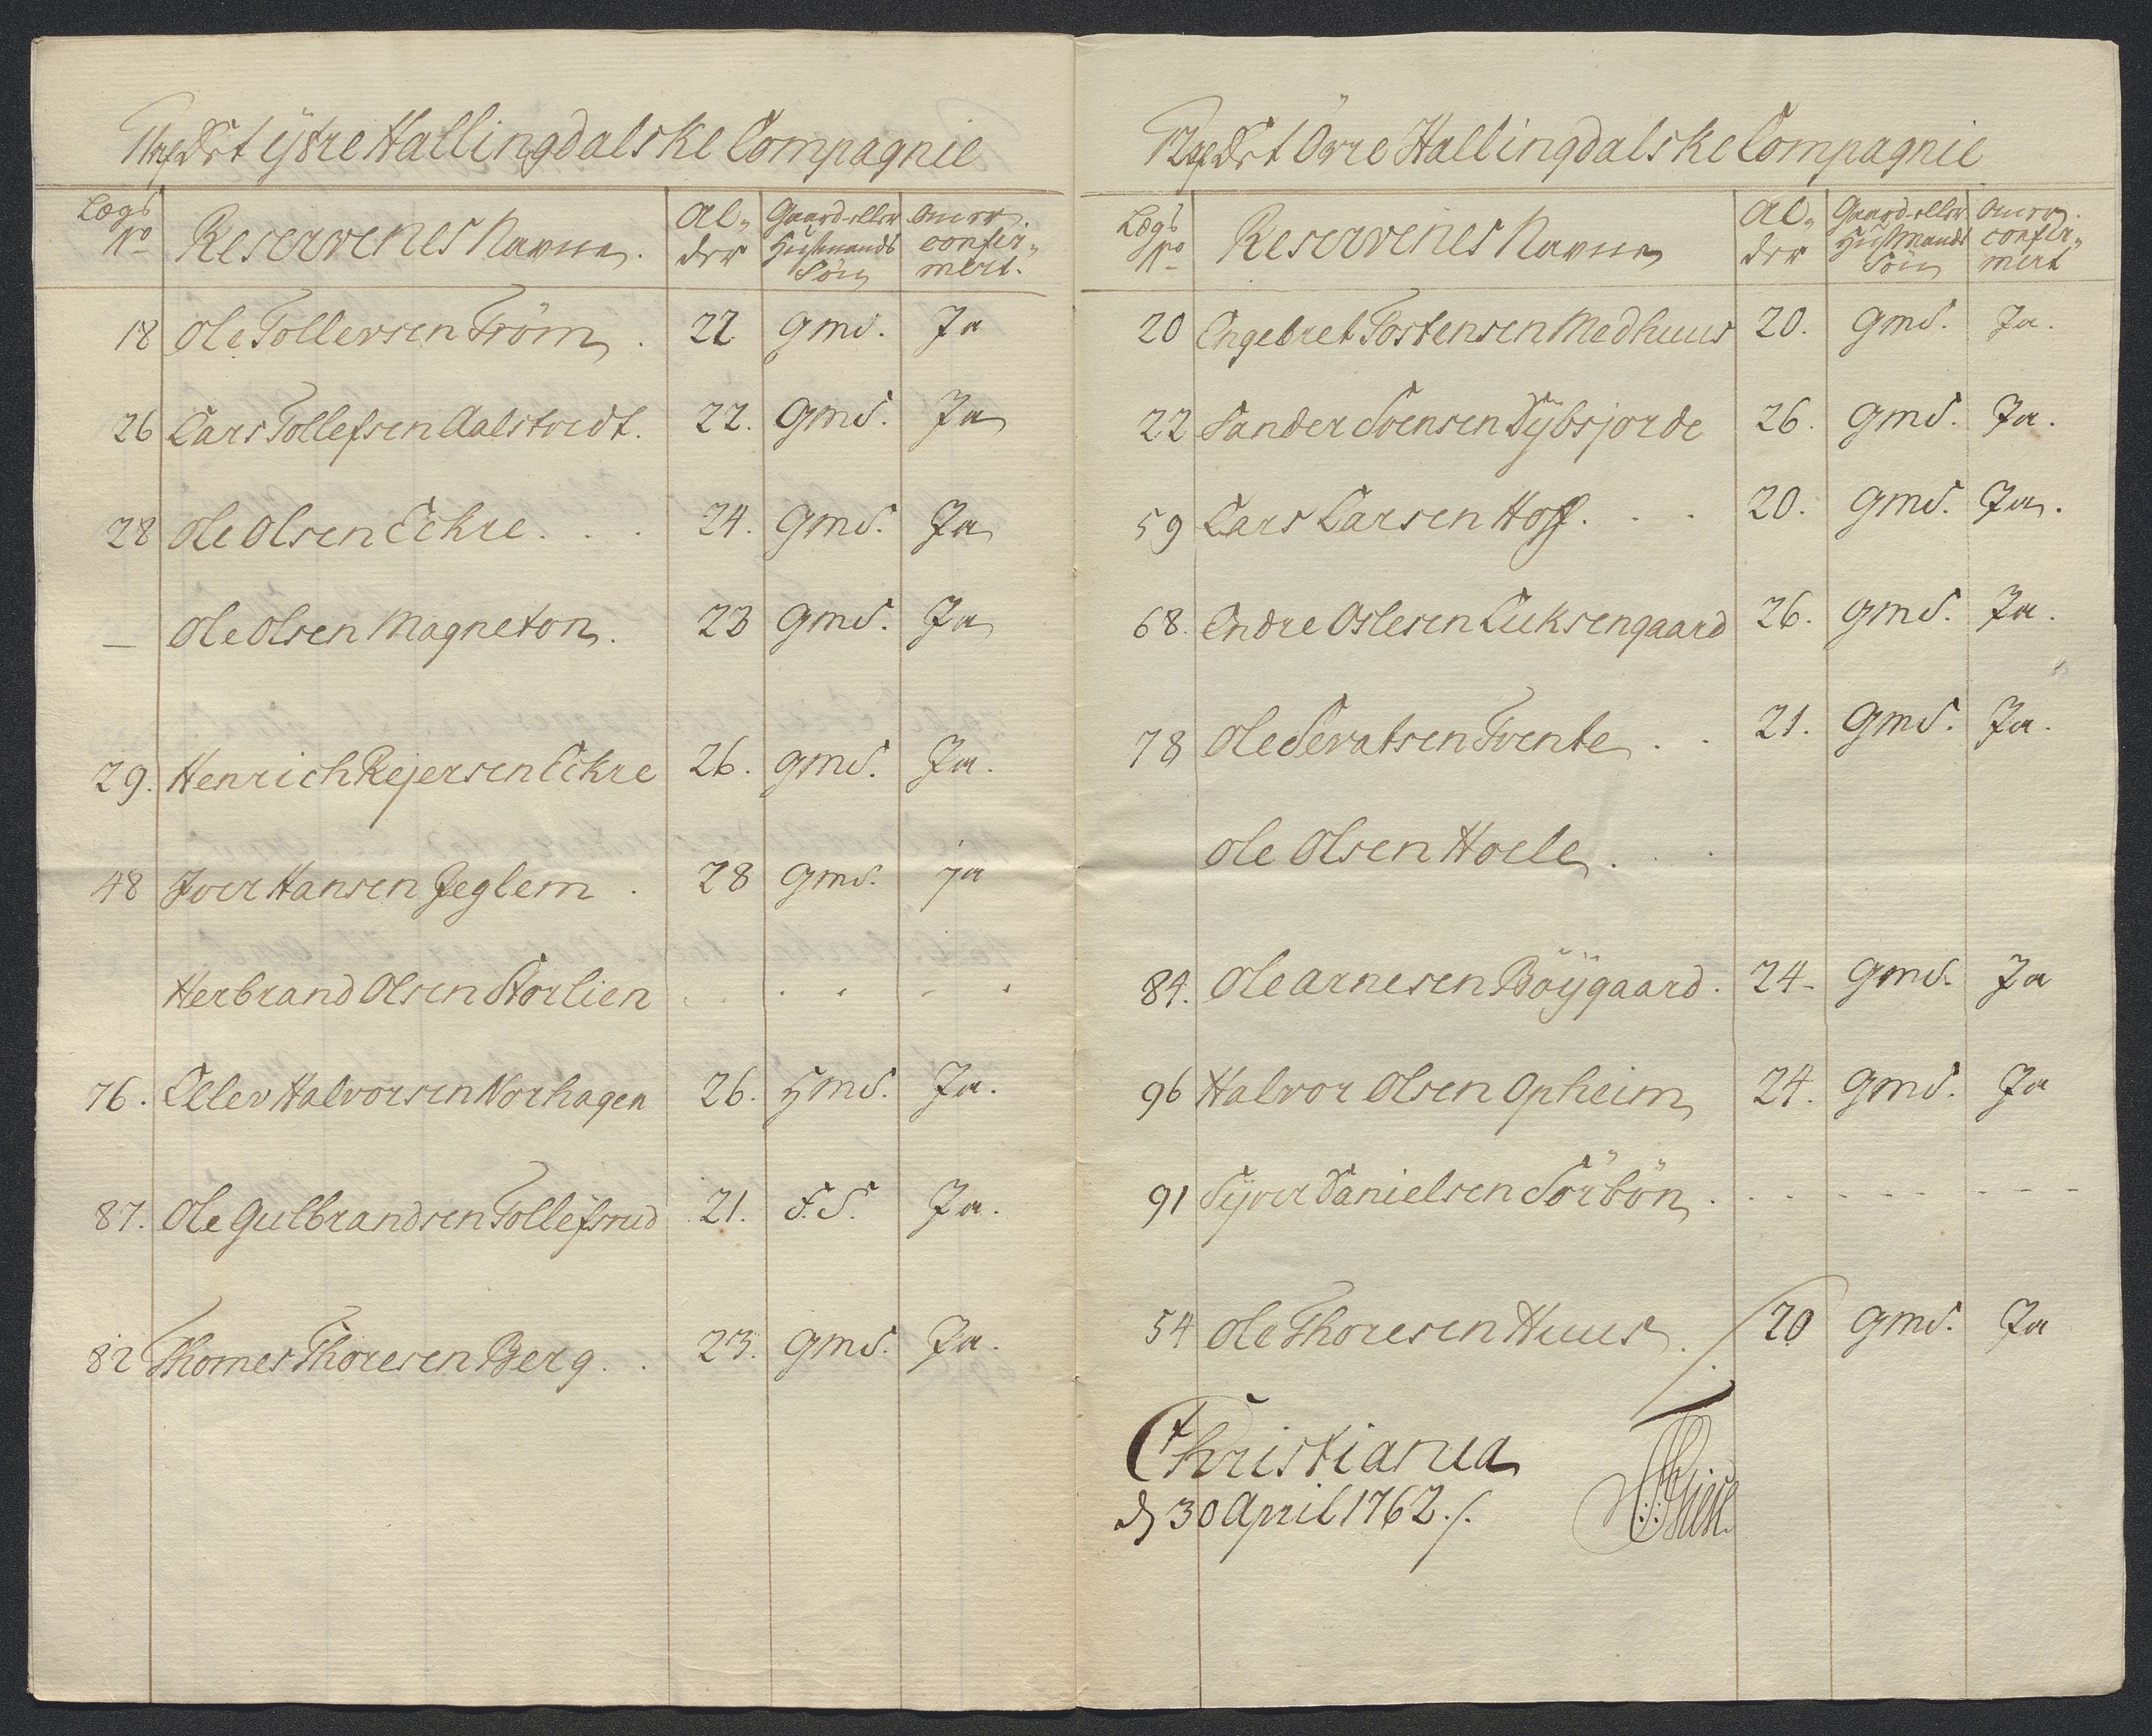 Af Det ÿtre Hallingdalske Compagnie
Lægs No | Reservenes Navne. | Al„der | Gaard- eller Huusmands Søn | Om er confir„mert.
18 Ole Tollevsen Tröm. 22 Gmd. Ja
26 Lars Tollefsen Aalstvedt. 22. Gmd. Ja
28 Ole Olsen Eckre. . . 24. Gmd. Ja
— Ole Olsen Magneton. 23 Gmd. Ja
29. Henrich Rejersen Eckre 26. Gmd. Ja.
48 Iver Hansen Jeglem . 28 Gmd. ja
Herbrand Olsen Storlien . . . - .
76. Ellev Halvorsen Norhagen 26. Hmd. Ja.
87. Ole Gulbrandsen Tollefsrud 21. S.S. Ja.
82 Thomes Thoresen Berg. . 23. Gmd. Ja.
Af Det Övre Hallingdalske Compagnie
Lægs No | Reservenes Navne | Al„der | Gaard- eller Huusmands Søn | Om er. confir„mert
20 Engebret Tostensen Medhuus 20. Gmd. Ja.
22 Sander Svensen Dÿbsjorde 26. Gmd. Ja.
59 Lars Larsen Hoff. . . 20. Gmd. Ja.
68. Endre Oslesen Luksengaard 26. Gmd. Ja.
78 Ole Sevatsen Tvente . . 21. Gmd. Ja.
Ole Olsen Hoele . . .
84. Ole Arnesen Böÿgaard. 24- Gmd. Ja
96 Halvor Olsen Opheim 24. Gmd. Ja
91 Sÿver Danielsen Sörbön . . - - - - - - -
54 Ole Thoresen Huus . /. 20 Gmd. Ja
Christiania
d 30 April 1762./.